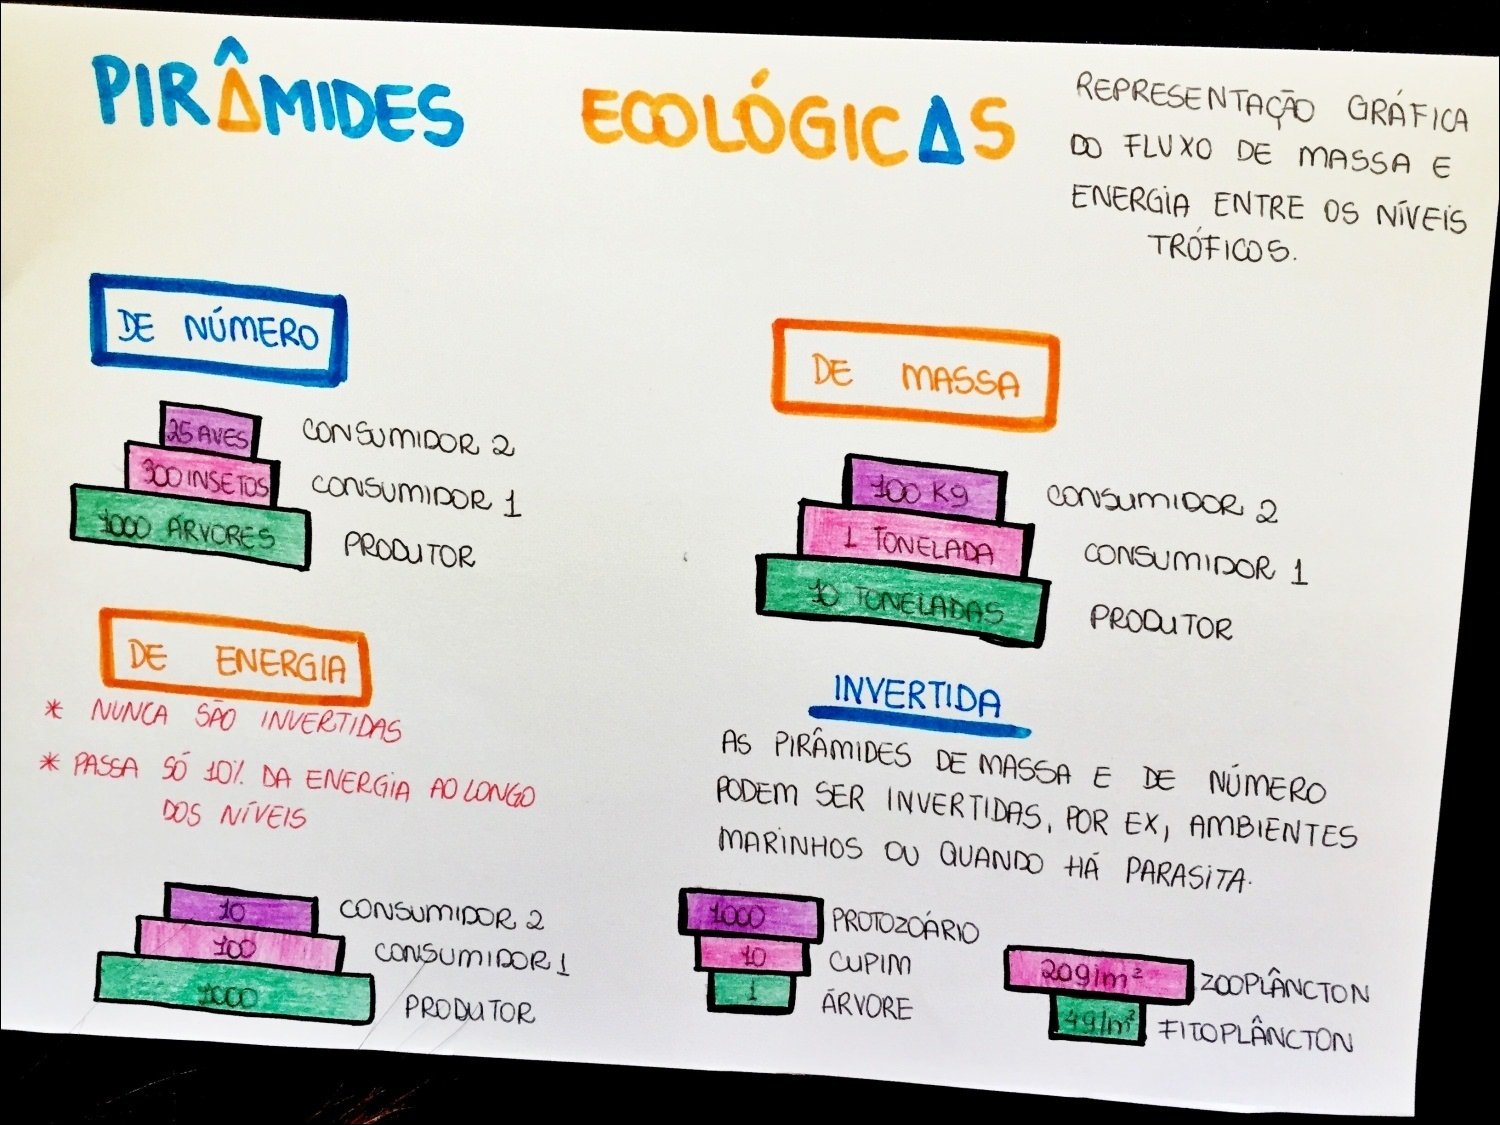 PIRÂMIDES ECOLÓGICAS
REPRESENTAÇÃO GRÁFICA
DO FLUXO DE MASSA E
ENERGIA ENTRE OS NÍVEIS
TRÓFICOS.
DE NÚMERO
25 AVES CONSUMIDOR 2
300 INSETOS CONSUMIDOR 1
1000 ÁRVORES PRODUTOR
DE ENERGIA
* NUNCA SÃO INVERTIDAS
* PASSA SÓ 10% DA ENERGIA AO LONGO
DOS NÍVEIS
10 CONSUMIDOR 2
100 CONSUMIDOR 1
1000 PRODUTOR
DE MASSA
100 Kg CONSUMIDOR 2
1 TONELADA CONSUMIDOR 1
10 TONELADAS PRODUTOR
INVERTIDA
AS PIRÂMIDES DE MASSA E DE NÚMERO
PODEM SER INVERTIDAS, POR EX, AMBIENTES
MARINHOS OU QUANDO HÁ PARASITA.
1000 PROTOZOÁRIO
10 CUPIM
1 ÁRVORE
20g/m² ZOOPLÂNCTON
4g/m² FITOPLÂNCTON